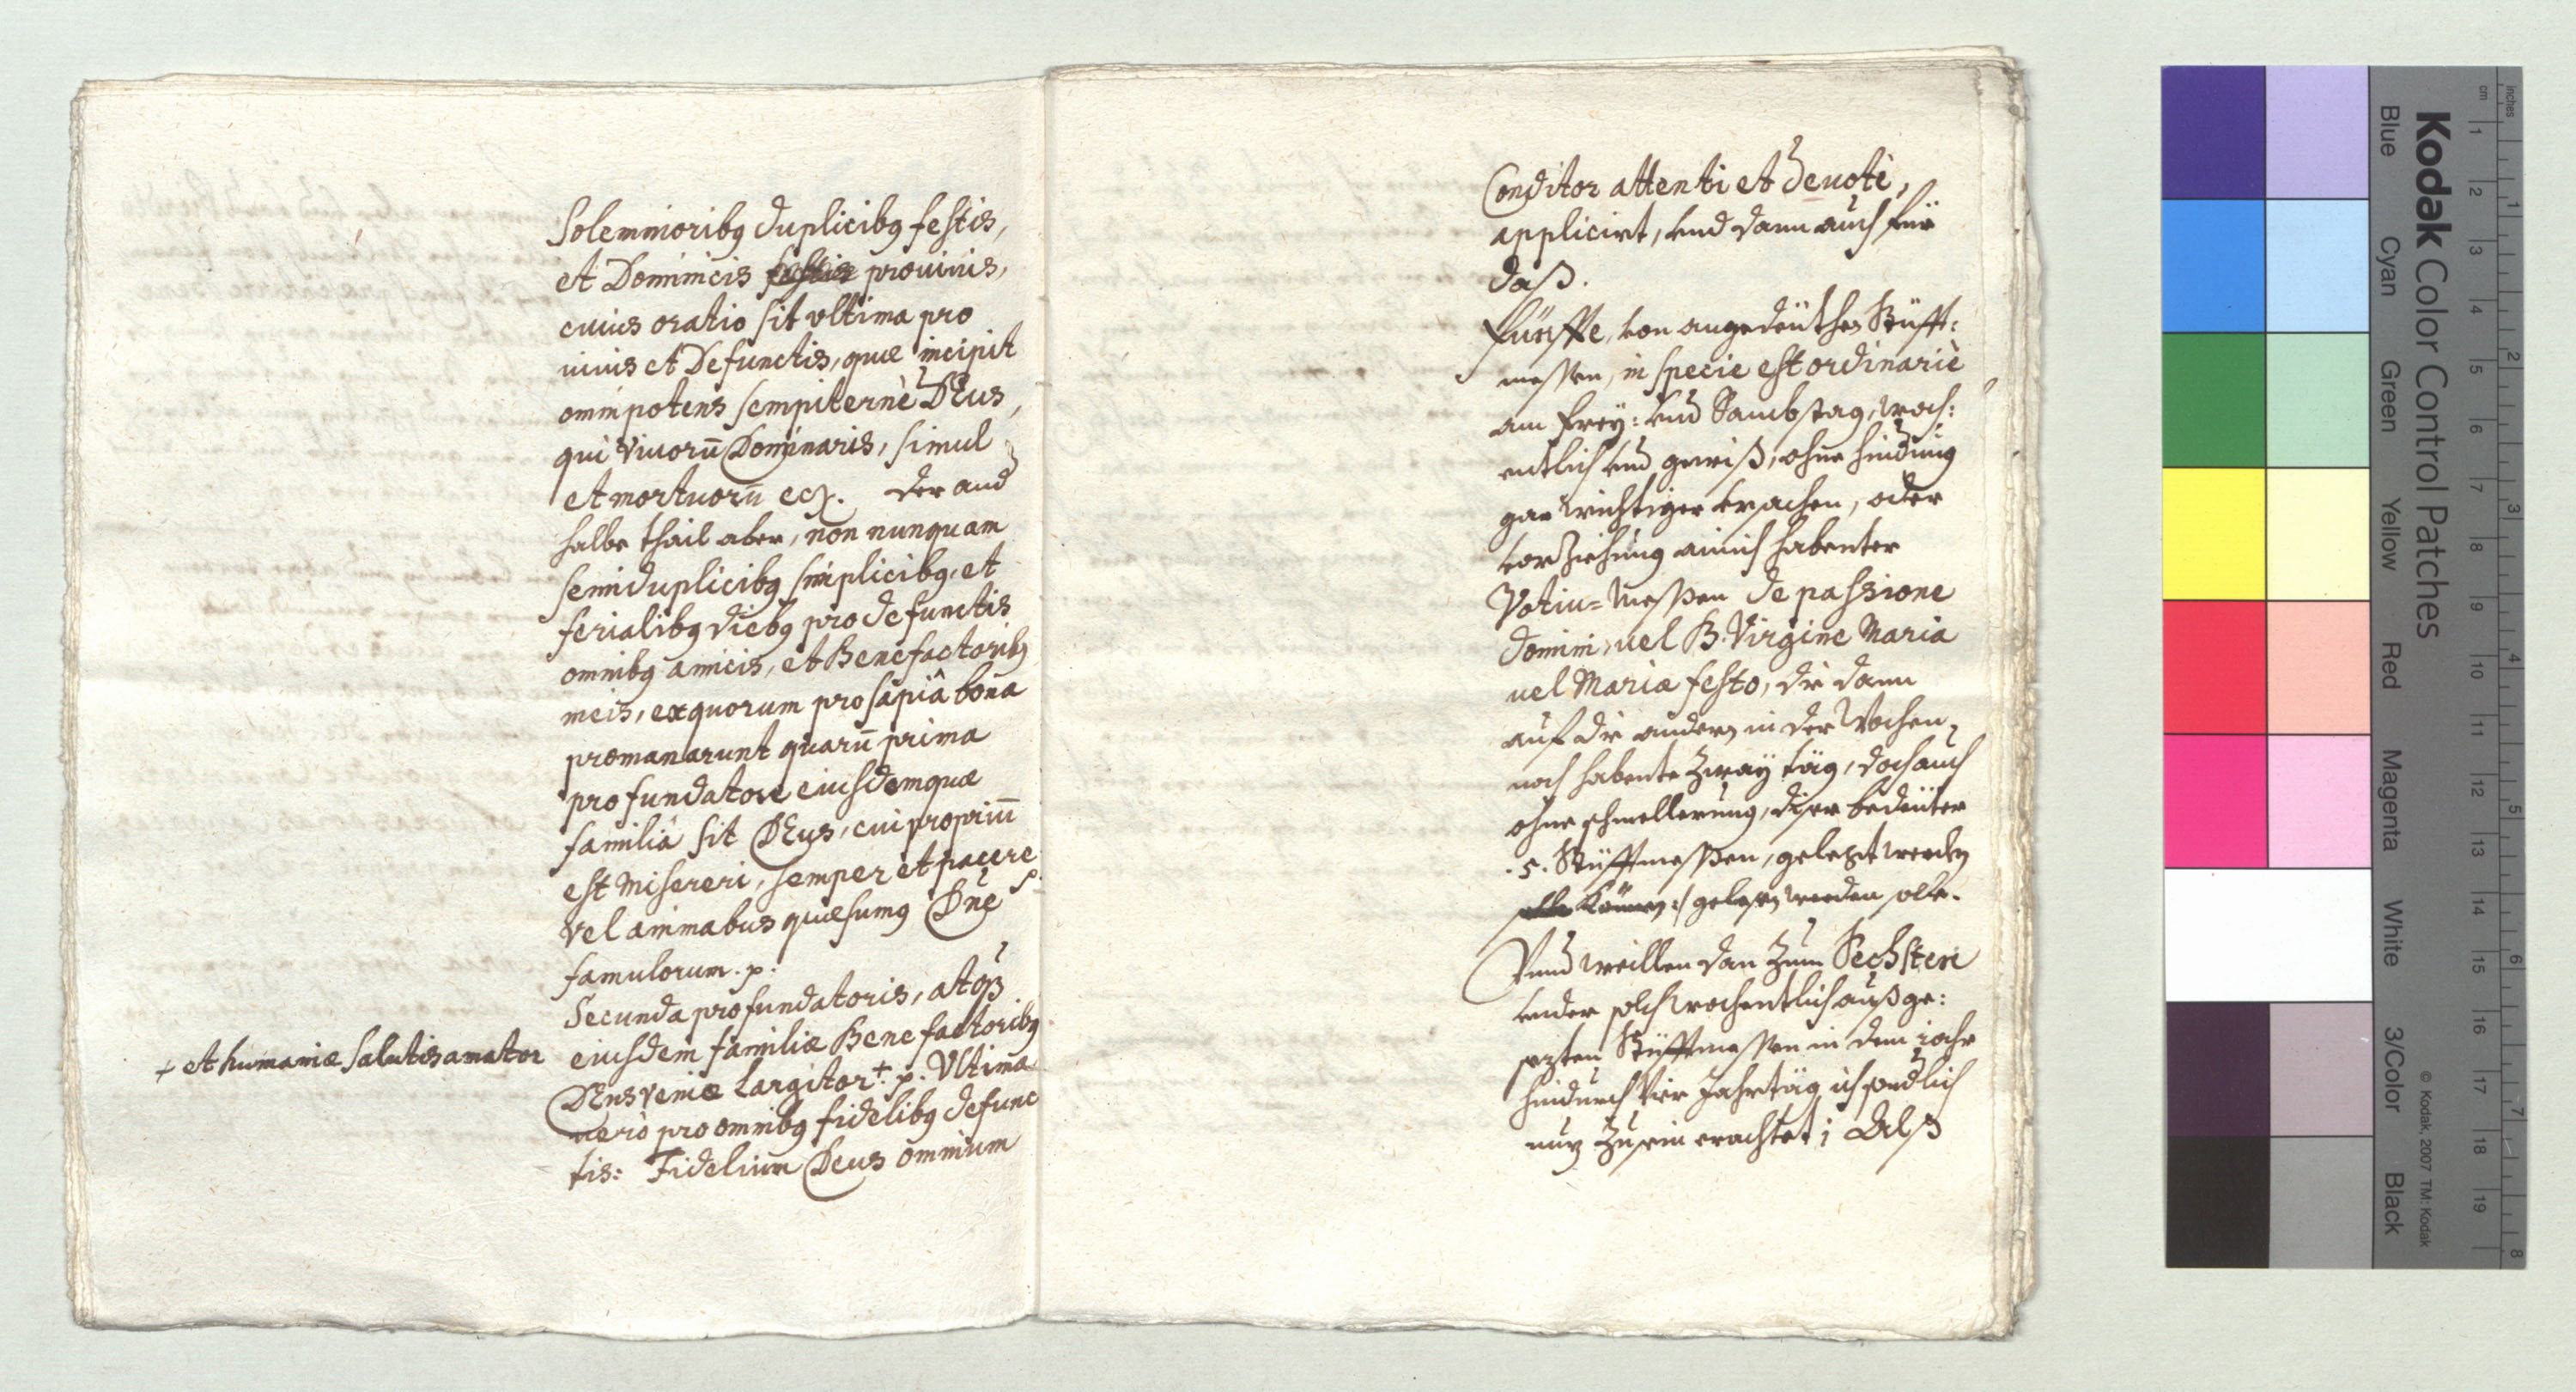 Solemnioribꝯ duplicibꝯ festis,
et Dominicis festis prouiuis,
cuius oratio sit vltima pro
uiuis et Defunctis, quæ incipit
omnipotens sempiternè DEus,
qui viuorū Dominaris, simul
et mortuorū ecꝫ. der and
halbe thail aber, non nunquam
semiduplicibꝯ simplicibꝯ, et
ferialibꝯ diebꝯ pro defunctis
omnibꝯ amicis, et Benefactoribꝯ
meis, ex quorum prosapiâ bona
promanarunt quarū prima
pro fundatore eiusdemquæ
familiâ sit DEus, cui propriū
est Misereri, semper et pacere
vel animabus quæsumꝯ Dn̄e
famulorum. p.
Secunda pro fundatoris, atqꝫ
eiusdem familiæ Benefactoribꝯ
+ et humanæ salutis amator
DEus veniæ Largitor + p. Vltima
uerò pro omnibꝯ fidelibꝯ defunc
tis: Fidelium Deus omnium
Conditor attentè et deuotè,
applicirt, vnd dann auch für
daß.
Fünffte, von angedeüthen Stüfft:
messen, in specie est ordinariè
am Frey: vnd Sambstag, woch:
entlich vnd gewiß, ohne hindung
gar wichtiger vrsachen, oder
vorziehung ainich habenter
Votiu= Messen de passione
domini, uel B. Virgine Maria
uel Mariæ festo, die dann
auf die andern in der Wochen,
noch habente zway täg, doch auch
ohne schmellerung, diser bedeüter
.5. Stüfftmessen, gelegt werden
solle können :/ gelesen werden solle.
Vnnd weillen dan zum Sechsten
vnder solch wochentlich außge:
sezten Stüfftmessen in dem iahr
hindurch Vier Jahrtäg ich sondlich
nuz zu sein erachtet; Alß